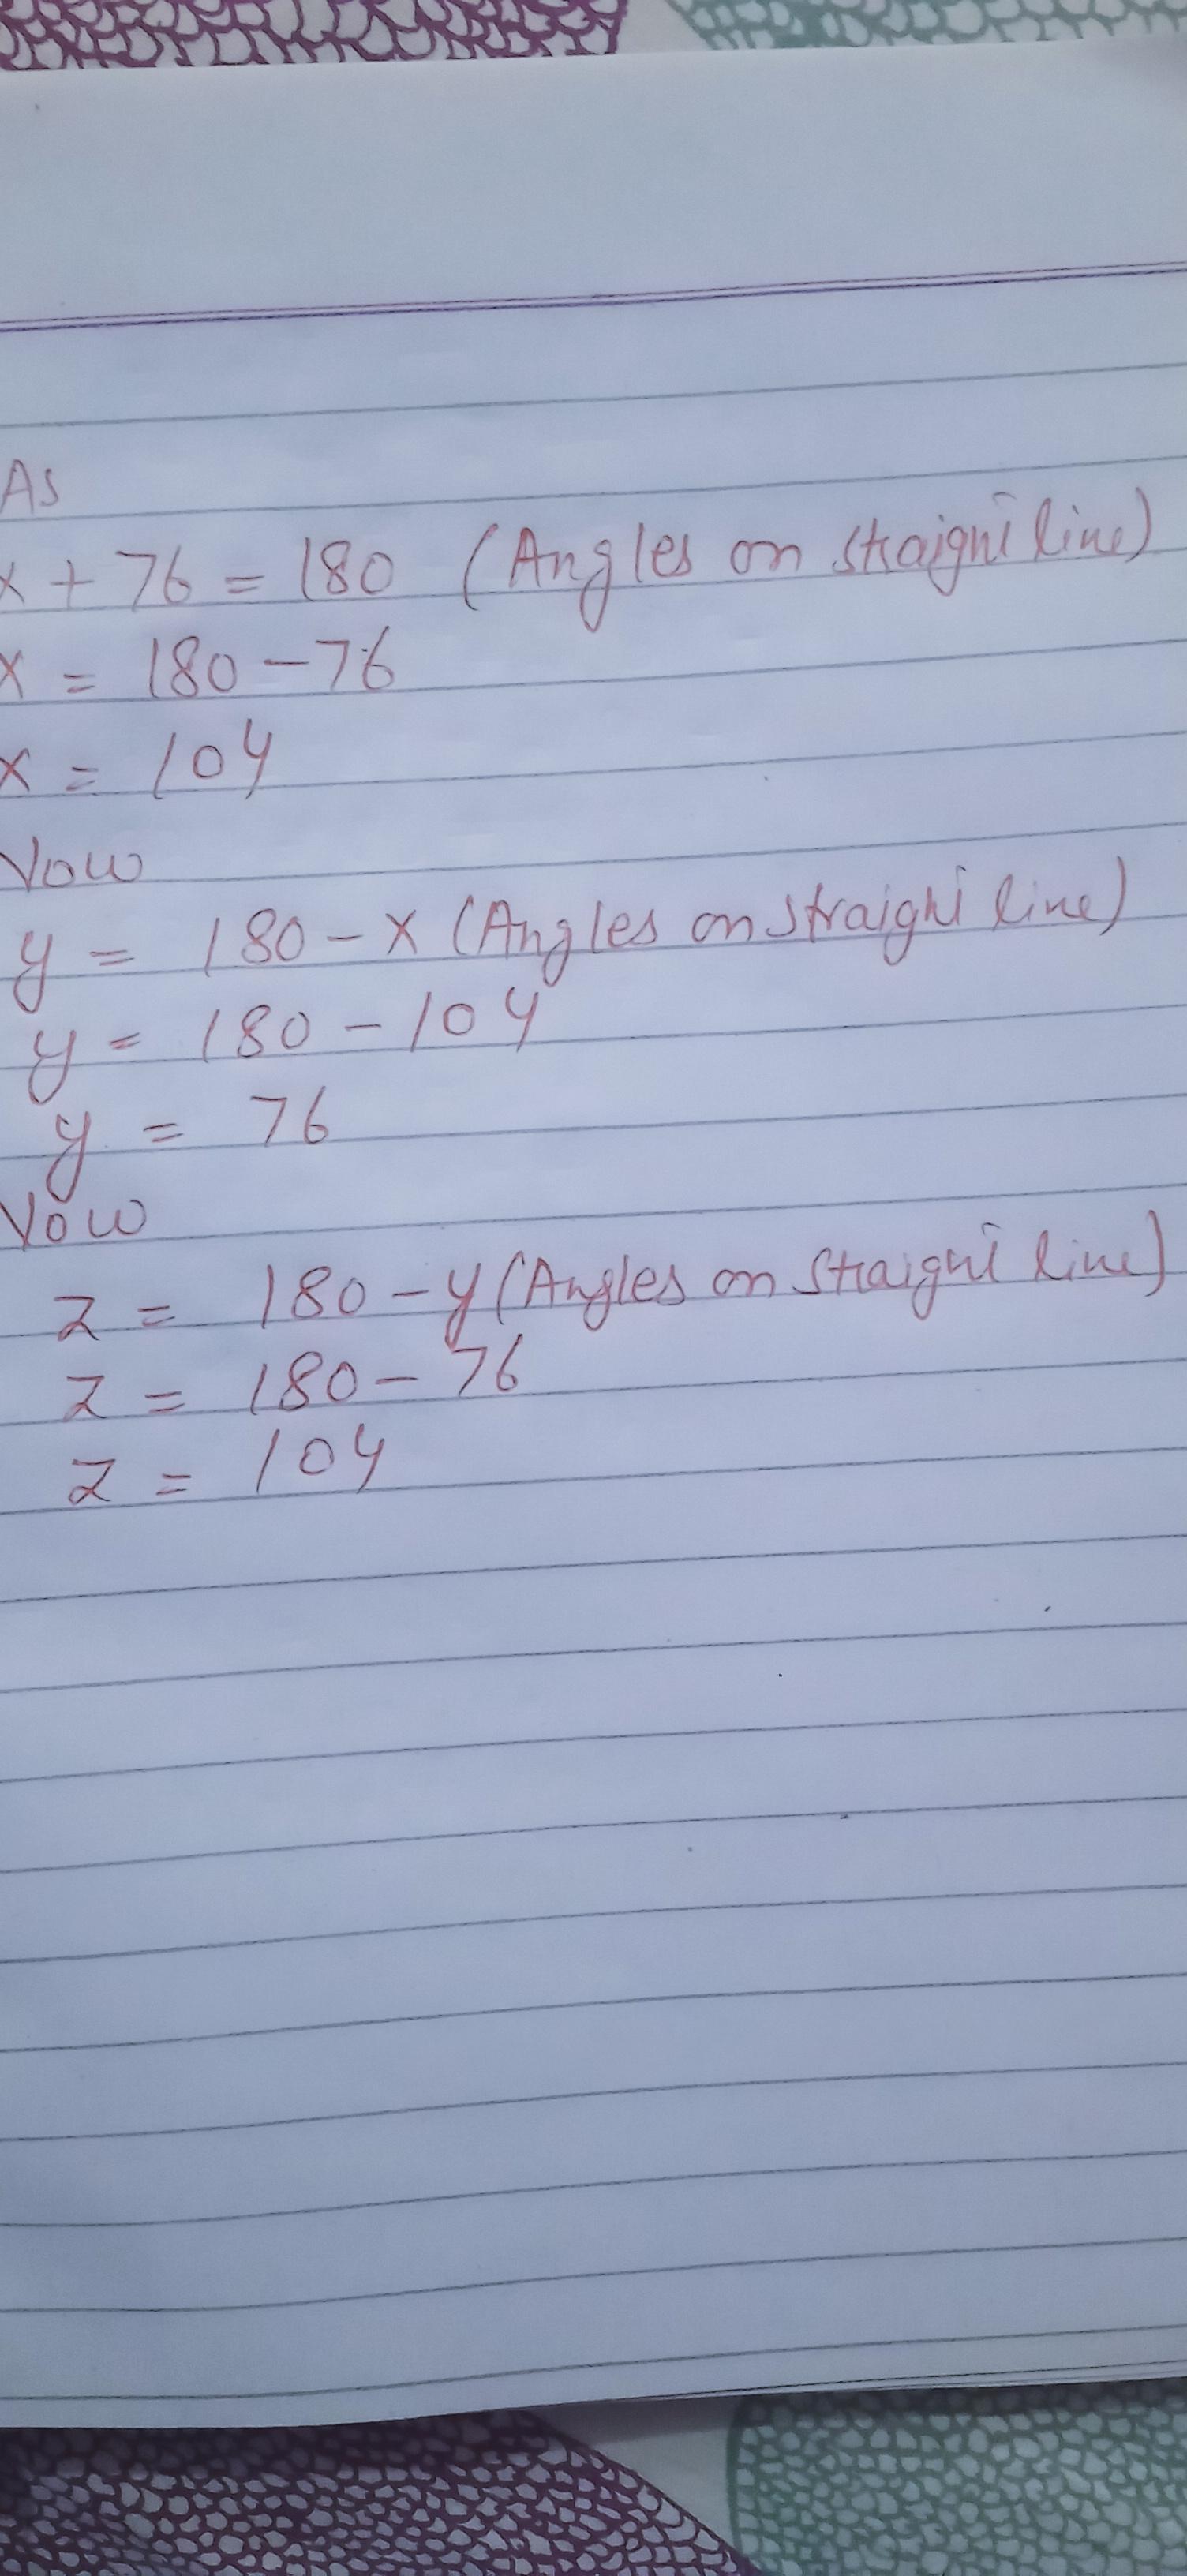 As
x + 76 = 180 (Angles on straight line)
x = 180 - 76
x = 104
Now
y = 180 - x (Angles on straight line)
y = 180 - 104
y = 76
Now
z = 180 - y (Angles on straight line)
z = 180 - 76
z = 104